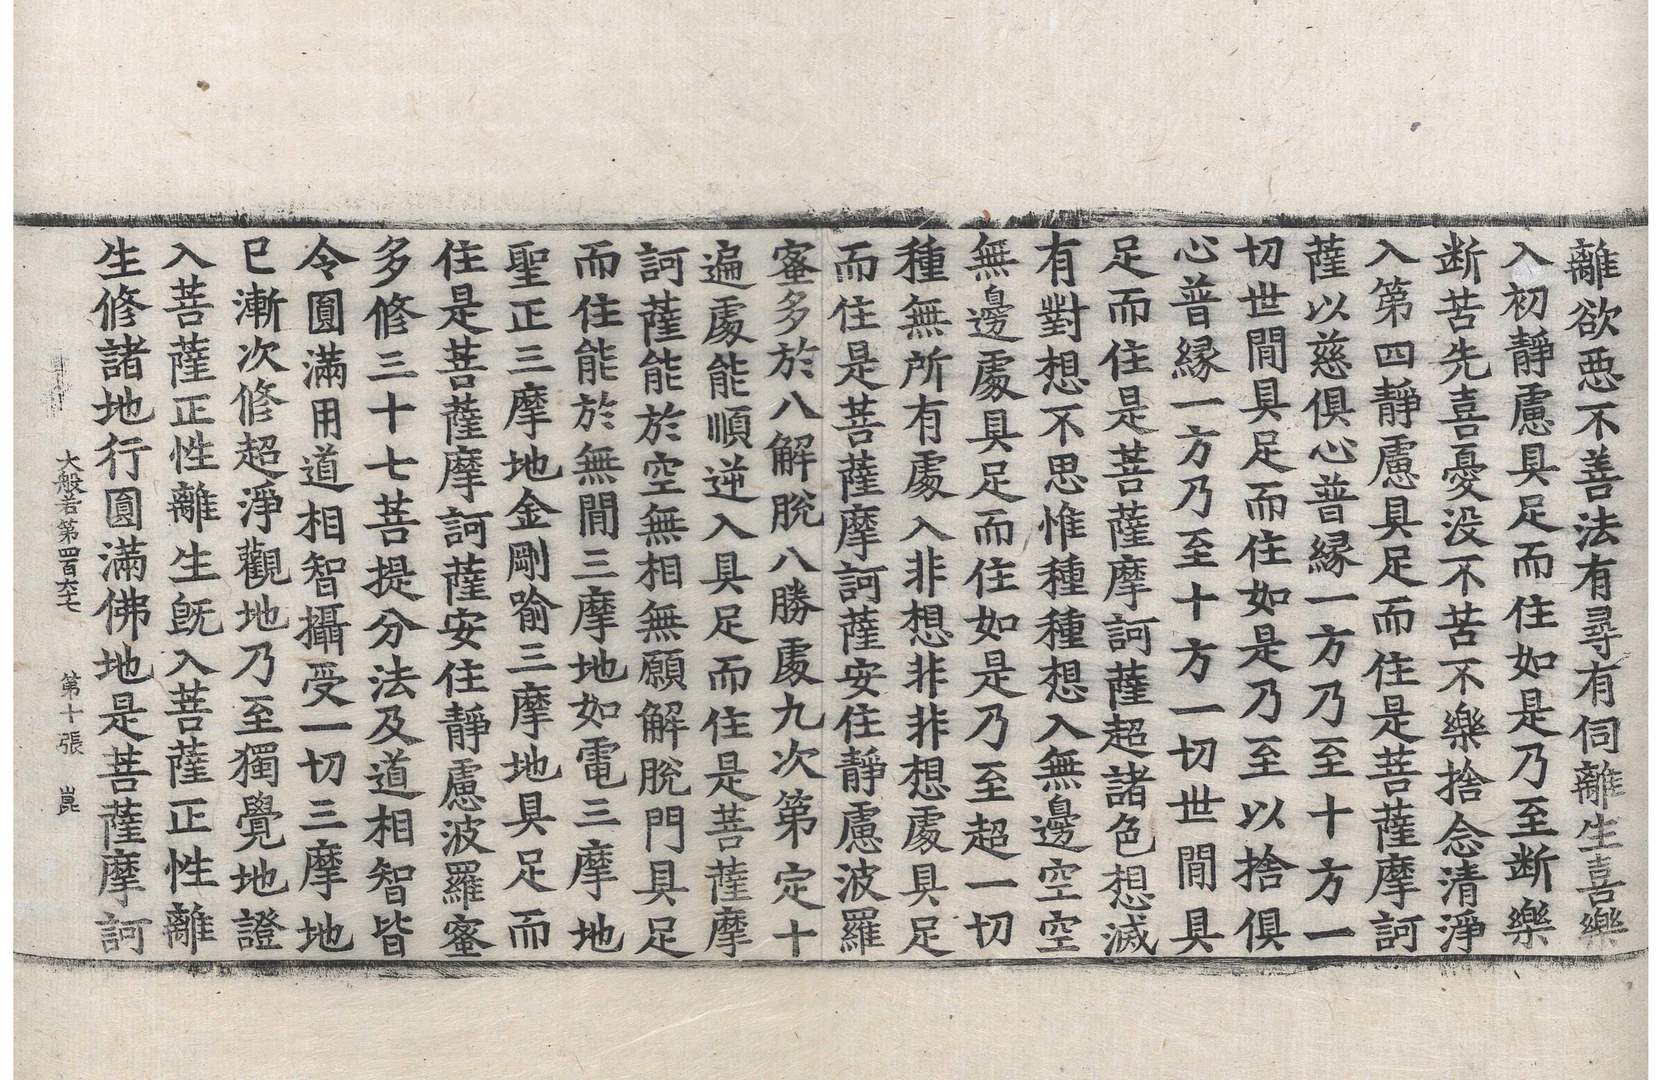 離欲惡不善法有尋有伺離生喜樂
入初靜慮具足而住如是乃至斷樂
断苦先喜憂没不苦不樂捨念清淨
入第四靜慮具足而住是菩薩摩訶
薩以慈俱心普縁一方乃至十方一
切世間具足而住如是乃至以捨俱
心普縁一方乃至十方一切世間具
足而住是菩薩摩訶薩超諸色想滅
有對想不思惟種種想入無邊空空
無邊處具足而住如是乃至超一切
種無所有處入非想非非想處具足
而住是菩薩摩訶薩安住靜慮波羅
蜜多於八解脫八勝處九次第定十
遍處能順逆入具足而住是菩薩摩
訶薩能於空無相無願解脫門具足
而住能於無間三摩地如電三摩地
聖正三摩地金剛喻三摩地具足而
住是菩薩摩訶薩安住靜慮波羅蜜
多修三十七菩提分法及道相智皆
令圓滿用道相智攝受一切三摩地
已漸次修超淨觀地乃至獨覺地證
入菩薩正性離生旣入菩薩正性離
生修諸地行圓滿佛地是菩薩摩訶
大般若第四百六十七 第十張 崑